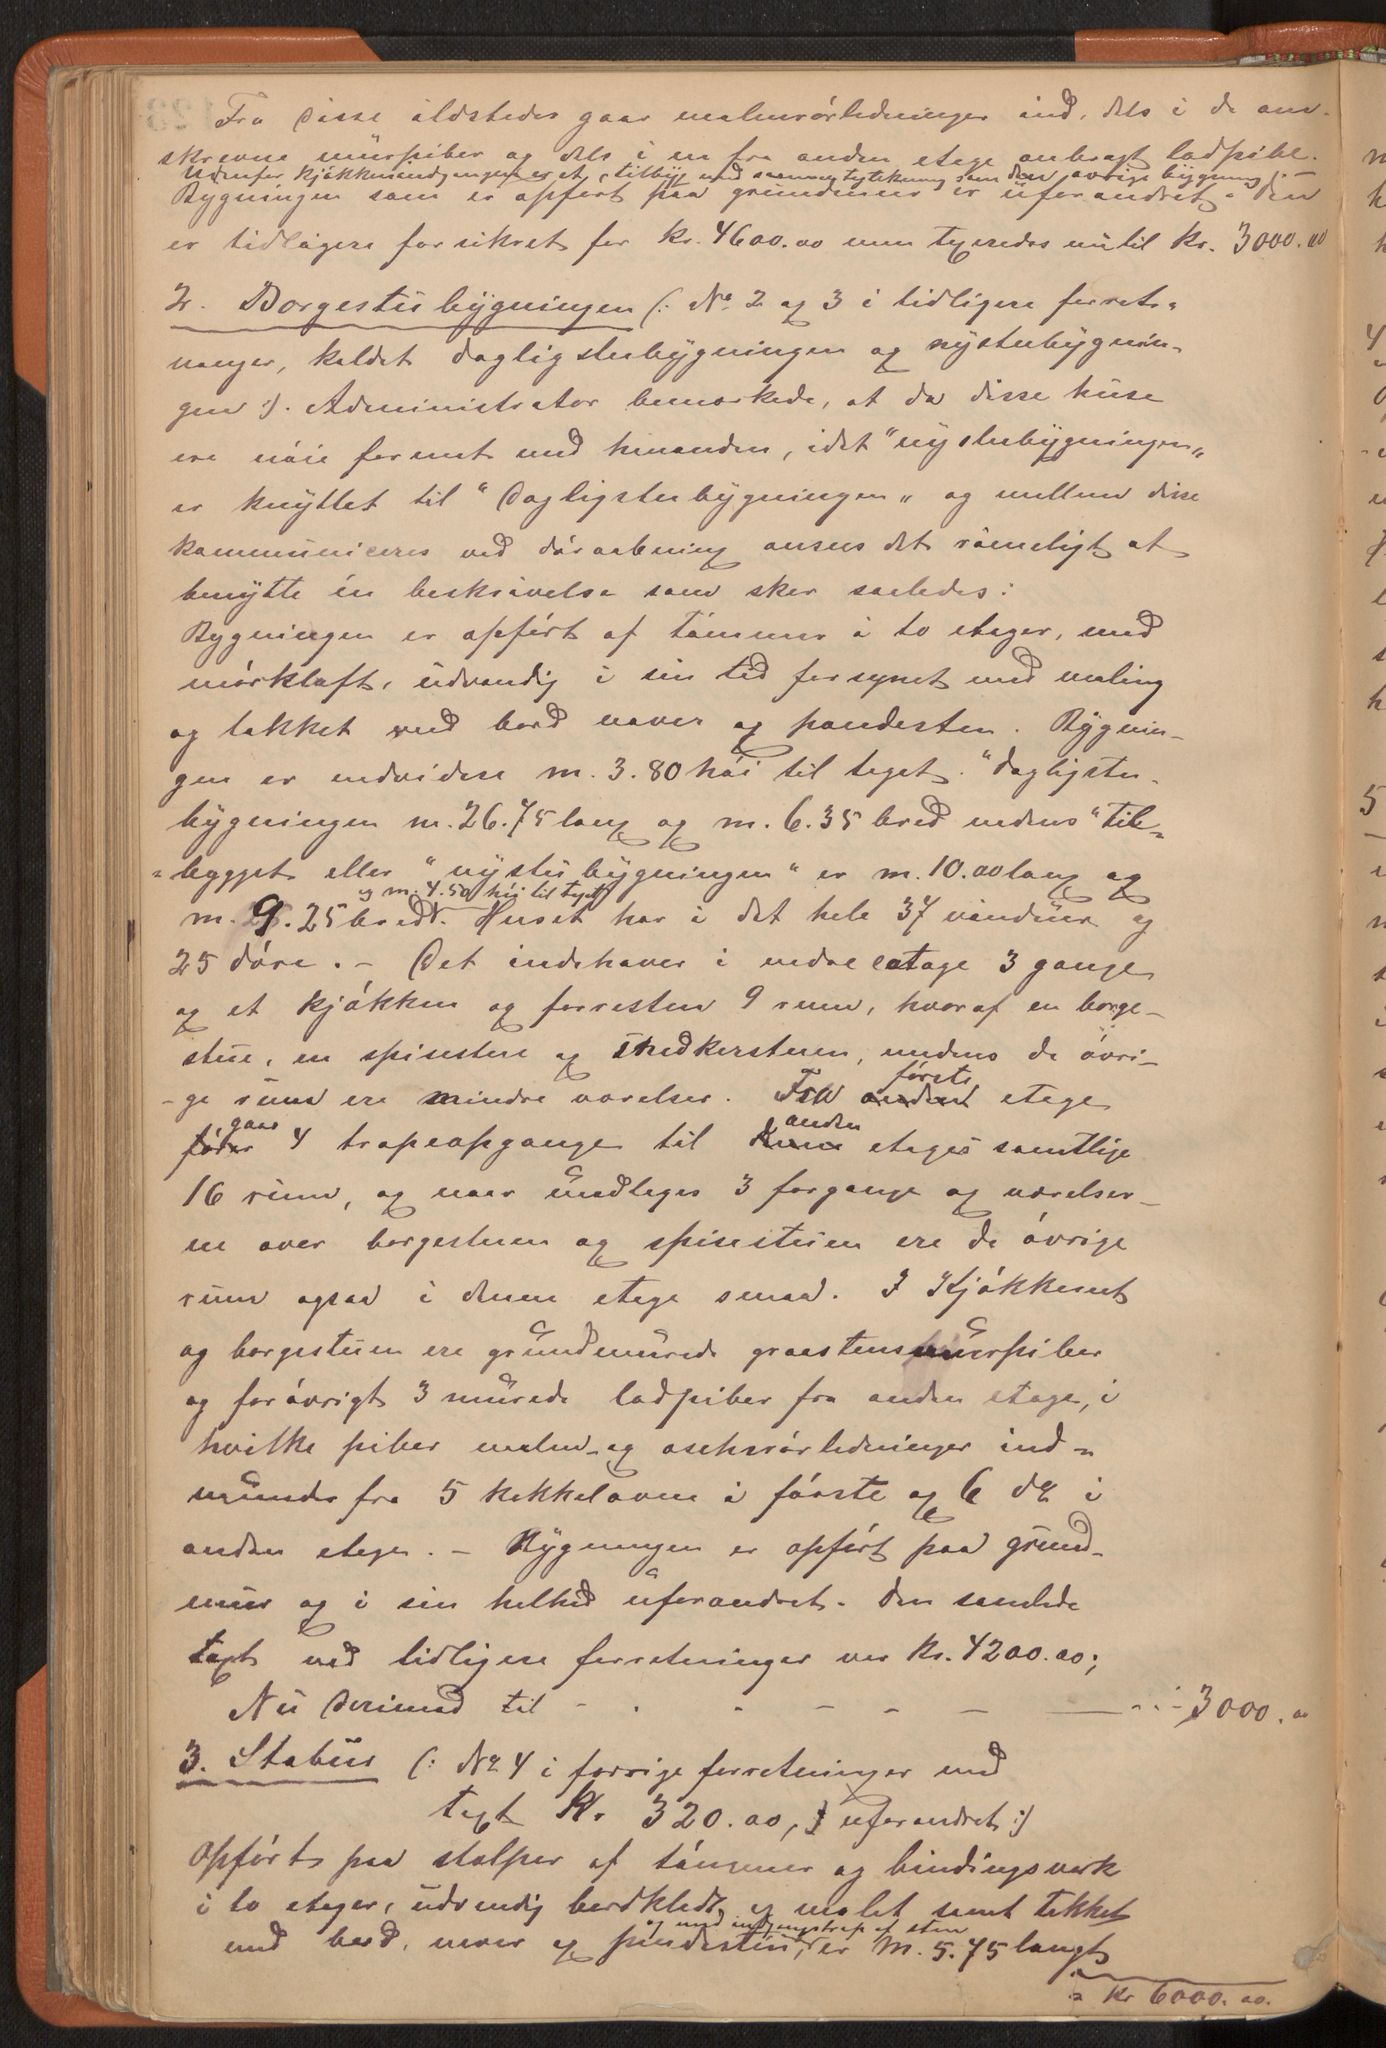 Fra disse ildsteder gaar malmrörledninger ind, dels i de om-
skrevne mürpiber og dels i en fra anden etage anbragt ladpibe.
Udenfor kjökkenindgangen er et tilbyg med samme tagtekning som den övrige bygning
Bygningen som er opfört paa grundmur er uforandret. Den
er tidligere forsikret for kr. 4600.00 men taxeredes nu til kr. 3000.00
2. Borgestübygningen (: No 2 og 3 i tidligere forret-
ninger, kaldet dagligstubygningen og nystubygnin-
gen :). Administrator bemærkede, at da disse huse
ere nöie forenet med hinanden, idet "nystubygningen"
er knyttet til "Dagligstubygningen" og mellem disse
kommuniceres ved döraabning ansees det rimeligt at
benytte én beskrivelse som sker saaledes:
Bygningen er opfört af tömmer i to etager, med
mörkloft, udvendig i sin tid forsynet med maling
og tækket med bord næver og pandesten. Bygnin-
gen er endvidere m. 3.80 höi til taget. "Dagligstu-
bygningen m. 26.75 lang og m. 6.35 bred medens "til-
bygget eller "nystübygningen" er m. 10.00 lang og
og m. 4.50 höi til taget
m. 9.25 bredt. Huset har i det hele 37 vinduer og
25 döre. – Det indehaver i nedre etage 3 gange
og et kjökken og forresten 9 rum, hvoraf en borge-
stue, en spisestue og snedkerstuen, medens de övri-
ge rum ere mindre værelser. Fra andent etage
förste
förer 4 trapeopgange til etages samtlige
gaar anden
16 rum, og naar undtages 3 forgange og værelser-
ne over borgestuen og spisestuen ere de övrige
rum ogsaa i denne etage smaa. I Kjökkenet
og borgestuen ere grundmurede graastensmürpiber
og forövrigt 3 murede ladpiber fra anden etage, i
hvilke piber malm- og askerörledninger ind-
munder fra 5 kakkelovne i förste og 6 do i
anden etage. – Bygningen er opfört paa grund-
mur og i sin helhed uforandret. Den samlede
taxt ved tidligere forretninger var kr. 4200.00;
Nu derimod til - - - - - - 3000.00
3. Stabür (: No 4 i forrige forretninger med
taxt Kr. 320.00, uforandret :)
Opfört paa stolper af tömmer og bindingsværk
i to etager, udvendig bordklædt og malet samt tækket
og med indgangstrap af sten
med bord, næver og pandesten, er m. 5.75 langt
Kr 6000.00.